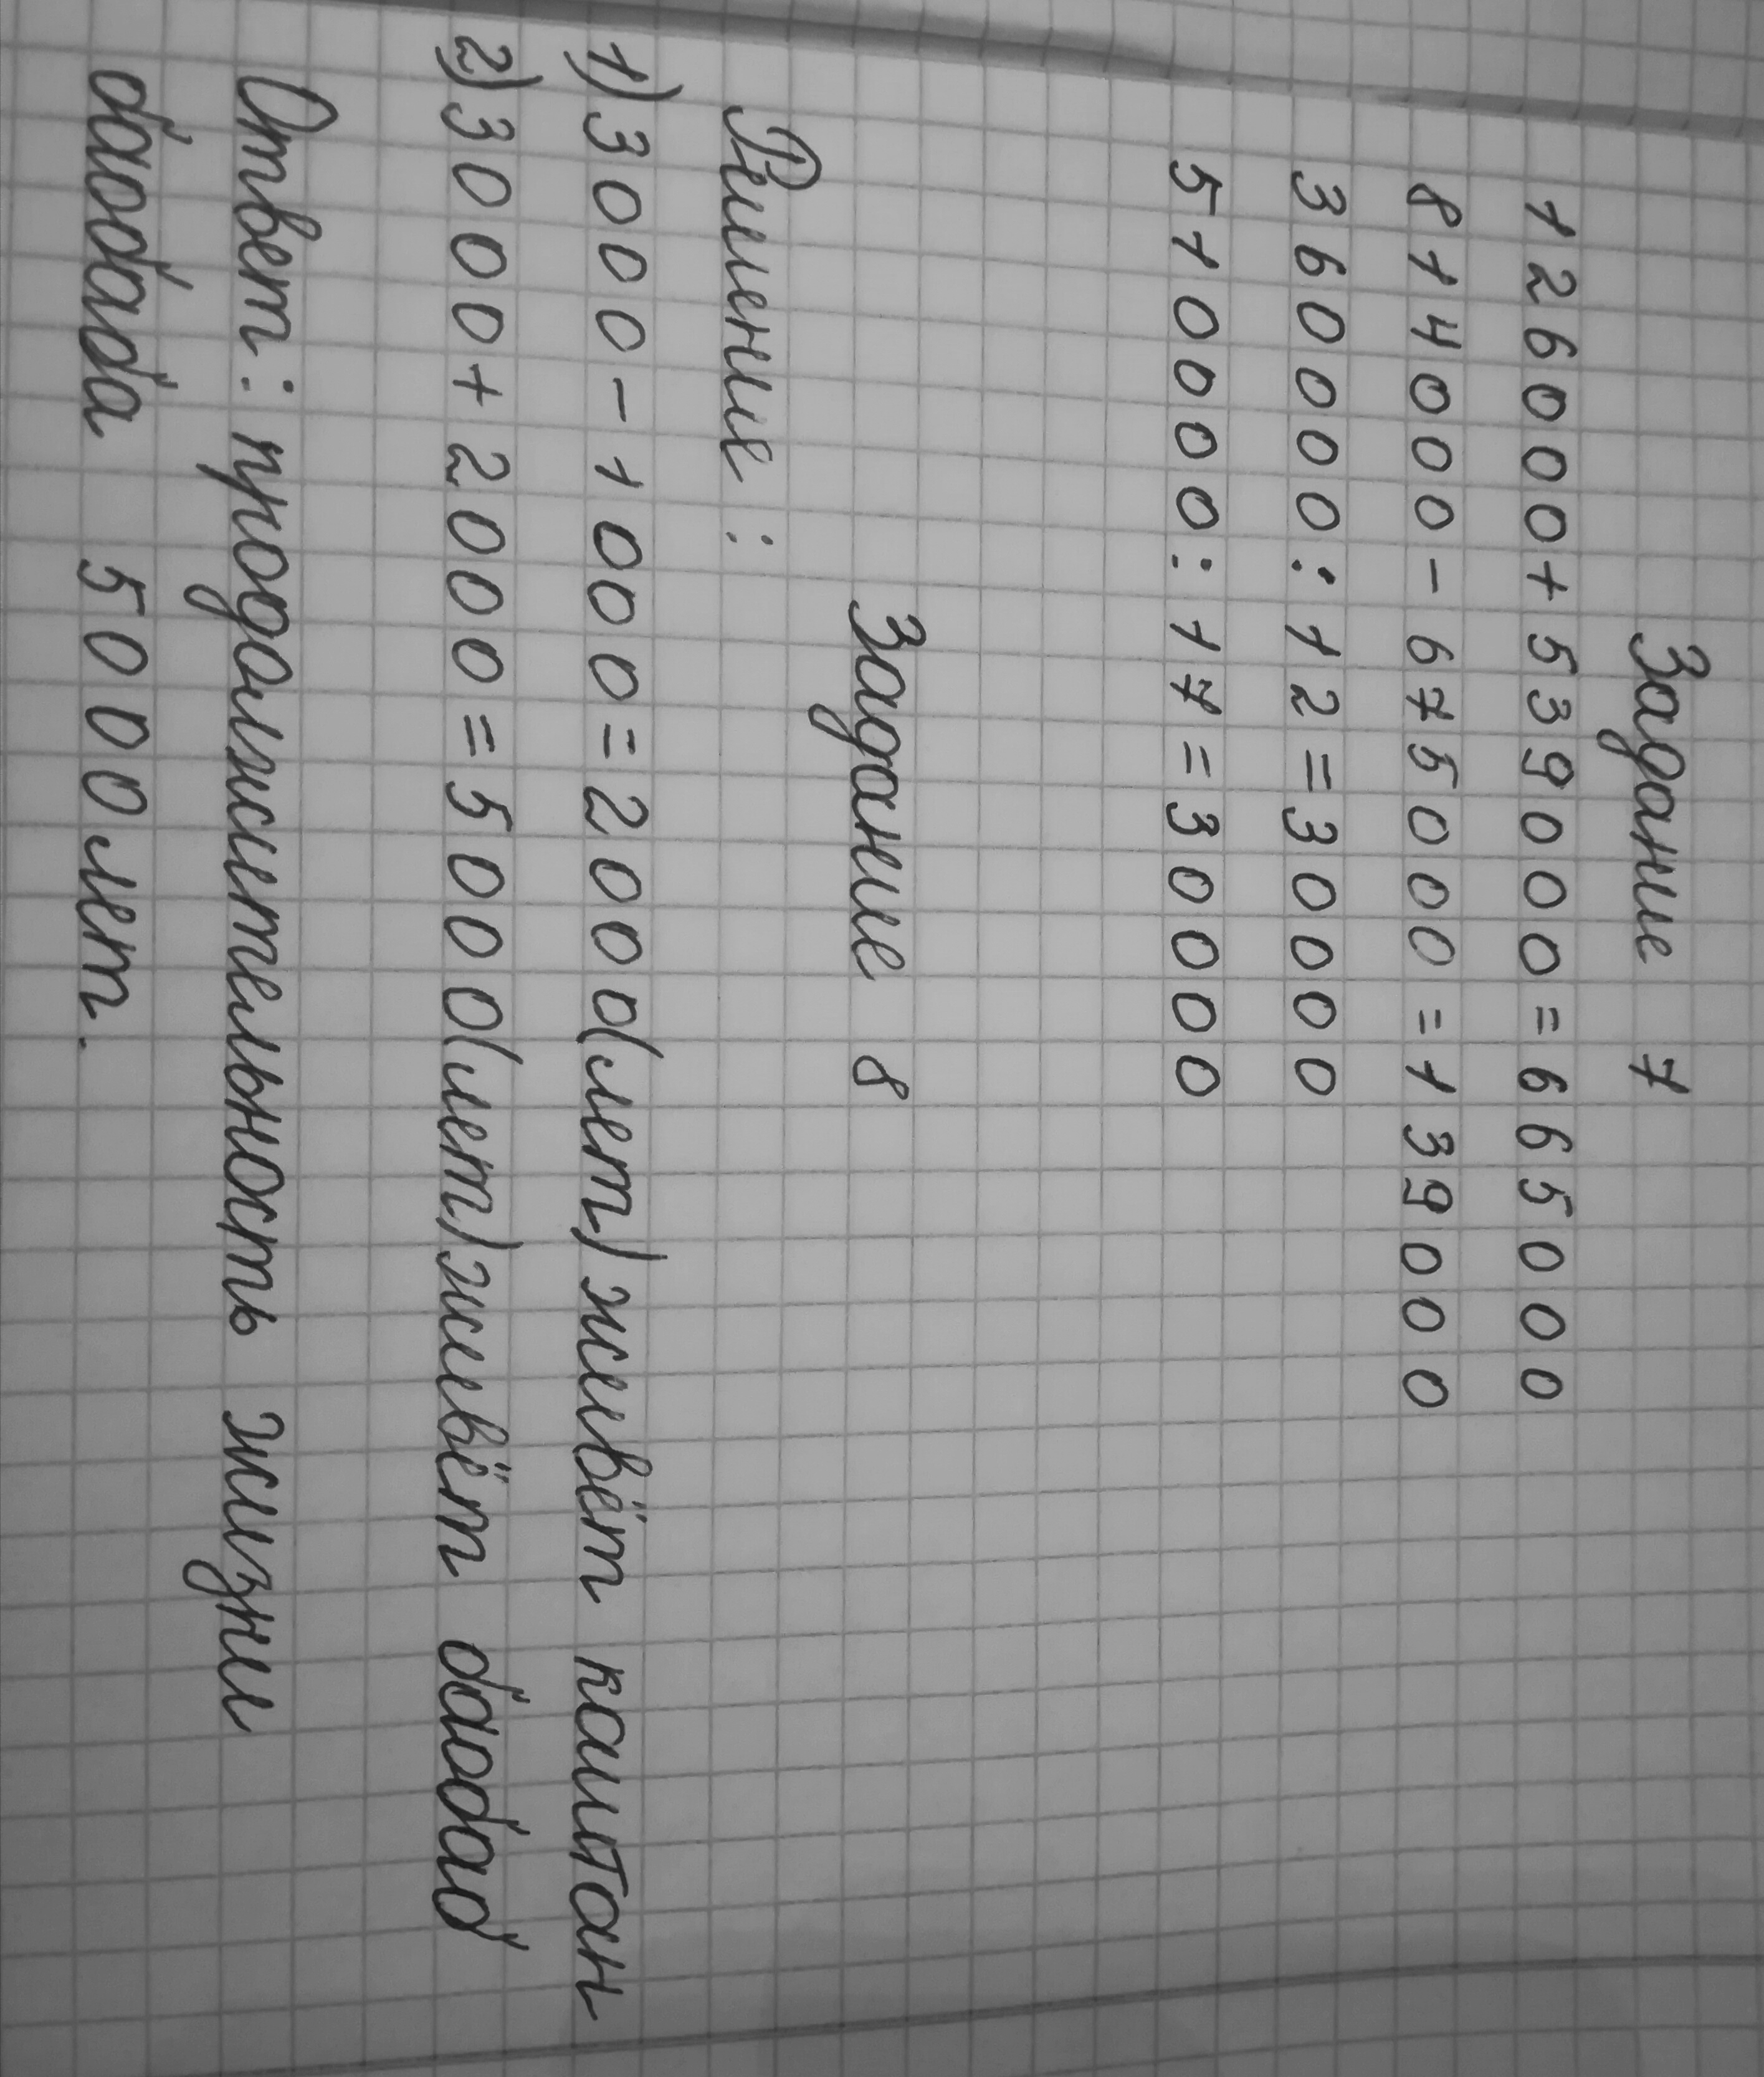 Задание 7
126000+539000=665000
814000-675000=139000
360000:12=30000
510000:17=30000
Задание 8
Решение:
1)3000-1000=2000(лет)живёт каштан
2)3000+2000=5000(лет)живёт баобаб
Ответ: продолжительность жизни
баобаба 5000лет.